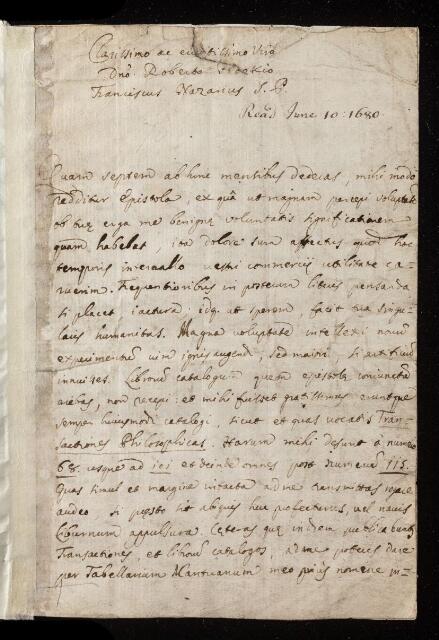 Clarissimo ac eruditissimo Viro
Dno Roberto Hookio
Franciscus Nazarius S. P.
Read June 10: 1680
Quam septem ab hinc mensibus dederas, mihi modo
redditur Epistola, ex quâ ut magnam percepi voluptatem
ob tuæ erga me benignæ voluntatis significationem
quam habebat, ita dolore sum affectus quod hoc
temporis intervallo vestri commercii utilitate ca-
ruerim. Frequentioribus in posterum literis pensanda
si placet iactura idq. ut sperem, facit tua singu-
laris humanitas. Magna voluptate intellexi novum
experimentum vim ignis augendi, sed maiori, si
innuisses. Librorum catalogum quem epistolæ coniunctum
aiebas, non recepi: et mihi fuisset gratissimus eruntque
semper huiusmodi catalogi, sicut et quas vocatis Tran-
sactiones Philosophicas. Harum mihi desunt à numero
68. usque ad 101 et deinde omnes post numerum 115.
Quas simul et
audeo si præsto sit aliquis huc profecturus, vel navis
Liburnum appulsura Ceteras quæ indem publicabuntur
Transactiones, et librorum catalogos, ad me poteris dare
per Tabellarium Mantuanum meo nomine